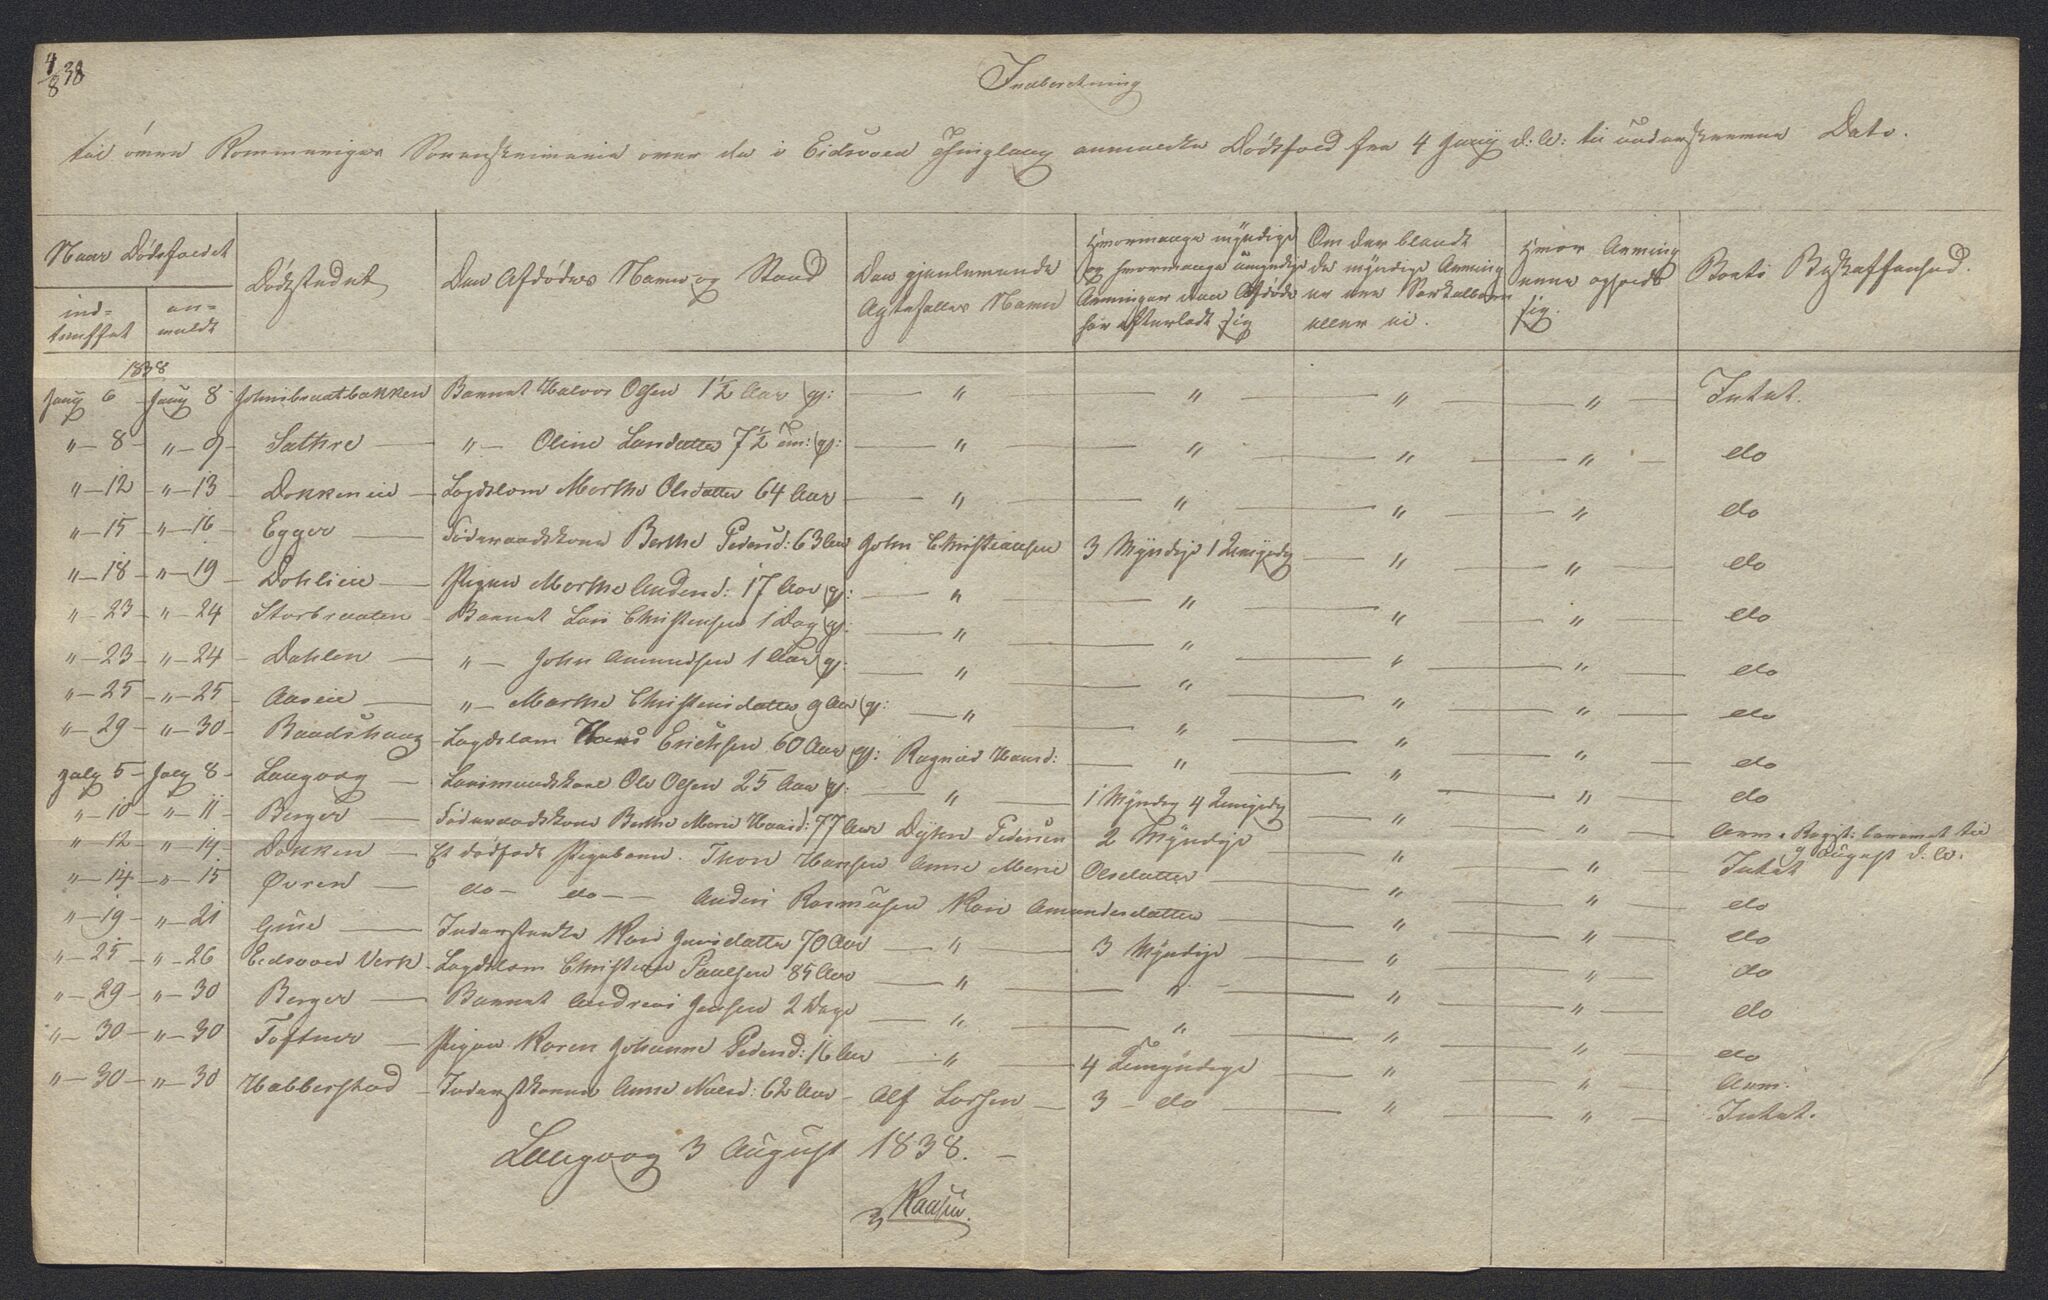 4/8 38
Indberetning
til øvre Rommeriges Sorenskriverie over de i Eidsvold Thinglaug anmeldte Dødsfald fra 4 Juny d: A: til underskrevne Dato.
Naar Dødsfaldet
ind-
truffet
an-
meldt
Dødsstedet
Den Afdødes Navn og Stand
Den gjenlevende
Ægtefælles Navn
Hvormange myndige
og hvormange umyndige
Arvinger den Afdøde
har efterladt sig
Om der blandt
de myndige Arving
er
eller ei.
Hvor Arving
erne opholde
sig.
Boets Beskaffenhed.
1838
Juny 6 Juny 8 Johnsbraatbakken Barnet Halvor Olsen 1½ Aar g: " " " " Intet.
" 8 " 9 Sæthre " Oline Larsdatter 7½ g: " " " " do
" 12 " 13 Dokken Lægdslem Marthe Olsdatter 64 Aar " " " " do
" 15 " 16 Egger Føderaadskone Berthe Pedersd: 63 Aar John Christiansen 3 Myndige 1 Umyndig " " do
" 18 " 19 Dohlie Pigen Marthe Andersd: 17 Aar g: " " " " do
" 23 " 24 Storbraaten Barnet Lars Christensen 1 Dag g: " " " " do
" 23 " 24 Dahlen " John Amundsen 1 Aar g: " " " " do
" 25 " 25 Aaseie " Marthe Christensdatter 9 Aar g: " " " " do
" 29 " 30 Baadshaug Lægdslem Hans Erichsen 60 Aar g: Ragnild Hansd: " " " do
July 5 July 8 Langvag Ole Olsen 25 Aar g: " 1 Myndig 4 Umyndig " " do
" 10 " 11 Berger Føderaadskone Berthe Marie Hansd: 77 Aar Pedersen 2 Myndige " " Arv: Regist: berammet til
9 August d. A.
" 12 " 14 Dokken Et dødfødt Pigebarn. Thor Hansen Anne Marie Olsdatter " " Intet
" 14 " 15 Øvren do do Anders Rasmusen Kari Amundsdatter " " do
" 19 " 21 Inderstenke Kari Jensdatter 70 Aar " 3 Myndige " " do
" 25 " 26 Eidsvold Verk Lægdslem Christian Paulsen 85 Aar " " " " do
" 29 " 30 Berger Barnet Andreas Jensen 2 Dage " " " " do
" 30 " 30 Toftner Pigen Karen Johanne Pedersd: 16 Aar " 4 Umyndige " " do
Arv:
" 30 " 30 Habberstad Inderstkonen Anne Nilsd: 62 Aar Alf Larsen 3 do " " Intet.
Langvag 3 August 1838.
Raasen.